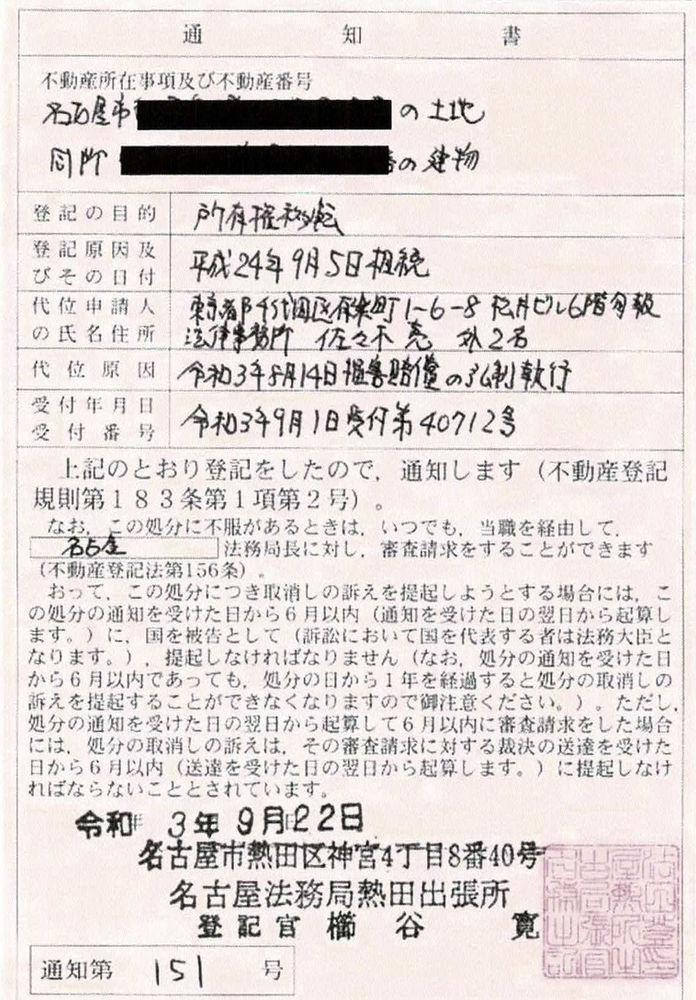 通知書
不動産所在事項及び不動産番号
名古屋市 の土地
同所 の建物
登記の目的 所有権移転
登記原因及びその日付 平成24年9月5日相続
代位申請人の氏名住所 東京都千代田区有楽町1-6-8 松井ビル6階旬報
法律事務所 佐々木亮 外2名
代位原因 令和3年8月14日損害賠償の強制執行
受付年月日
受付番号 令和3年9月1日受付第40712号
上記のとおり登記をしたので，通知します（不動産登記
規則第１８３条第１項第２号）。
なお，この処分に不服があるときは，いつでも，当職を経由して，
名古屋 法務局長に対し，審査請求をすることができます
（不動産登記法第156条）。
おって，この処分につき取消しの訴えを提起しようとする場合には，こ
の処分の通知を受けた日から６月以内（通知を受けた日の翌日から起算し
ます。）に，国を被告として（訴訟において国を代表する者は法務大臣と
なります。），提起しなければなりません（なお，処分の通知を受けた日
から６月以内であっても，処分の日から１年を経過すると処分の取消しの
訴えを提起することができなくなりますので御注意ください。）。ただし，
処分の通知を受けた日の翌日から起算して６月以内に審査請求をした場合
には，処分の取消しの訴えは，その審査請求に対する裁決の送達を受けた
日から６月以内（送達を受けた日の翌日から起算します。）に提起しなけ
ればならないこととされています。
令和 3年 9月22日
名古屋市熱田区神宮4丁目8番40号
名古屋法務局熱田出張所
登記官 櫛谷 寛
通知第 151 号